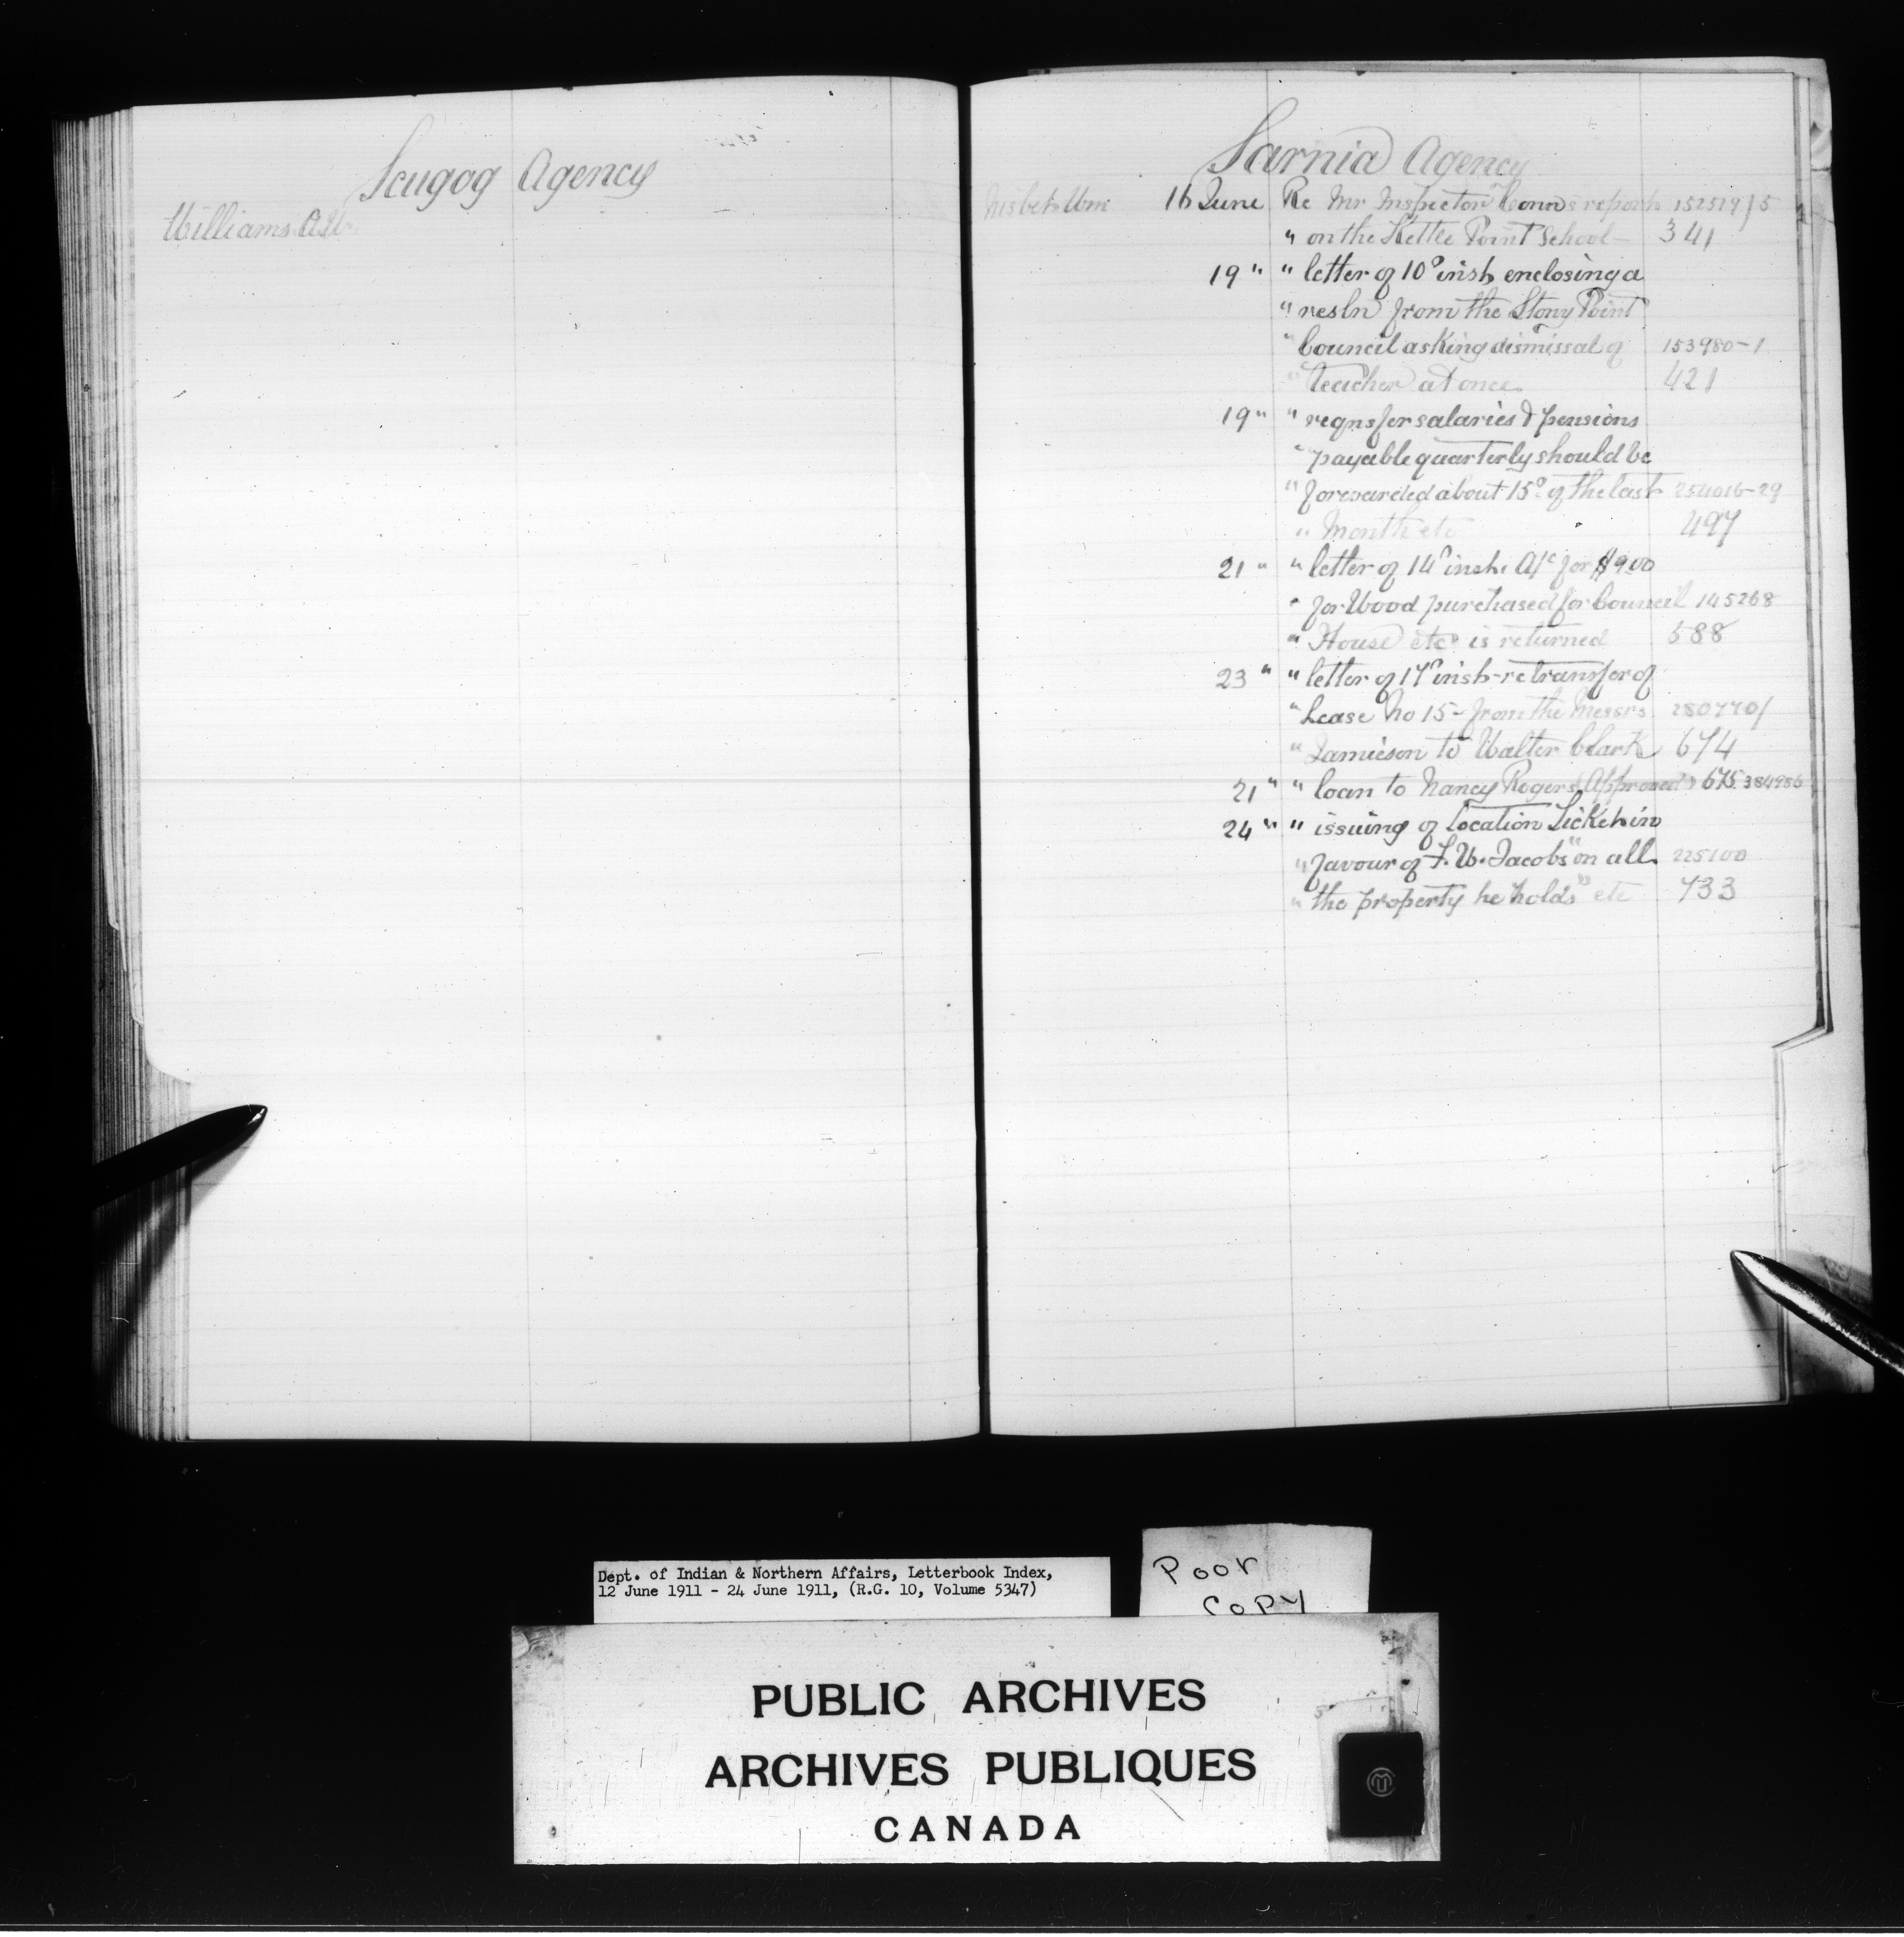 Scugog Agency
Williams A.W.
Sarnia Agency
Nisbet Wm 16 June Re Mr Inspector Conn's report 152519/5
" on the Kettle Point School 341
19 " " letter of 10º inst enclosing a
" resln from the Stony Point
" Council asking dismissal of 153980-1
" teacher at once 421
19 " " reqns for salaries & pensions
" payable quarterly should be
" forwarded about 15º of the last 254016-29
" Month etc 497
21 " " letter of 14º inst. A/c for $9.00
" for Wood purchased for Council 145268
" House etc is returned 588
23 " " letter of 17º inst - re transfer of
" Lease No 15 - from the Messrs 280770/
" Jamieson to Walter Clark 674
21 " " loan to Nancy Rogers (Approved) 675 384986
24 " " issuing of Location Ticket in
" favour of F. W. Jacobs "on all 225100
" the property he holds" etc 733
Dept. of Indian & Northern Affairs, Letterbook Index,
12 June 1911 - 24 June 1911, (R.G. 10, Volume 5347)
Poor
Copy
PUBLIC ARCHIVES
ARCHIVES PUBLIQUES
CANADA